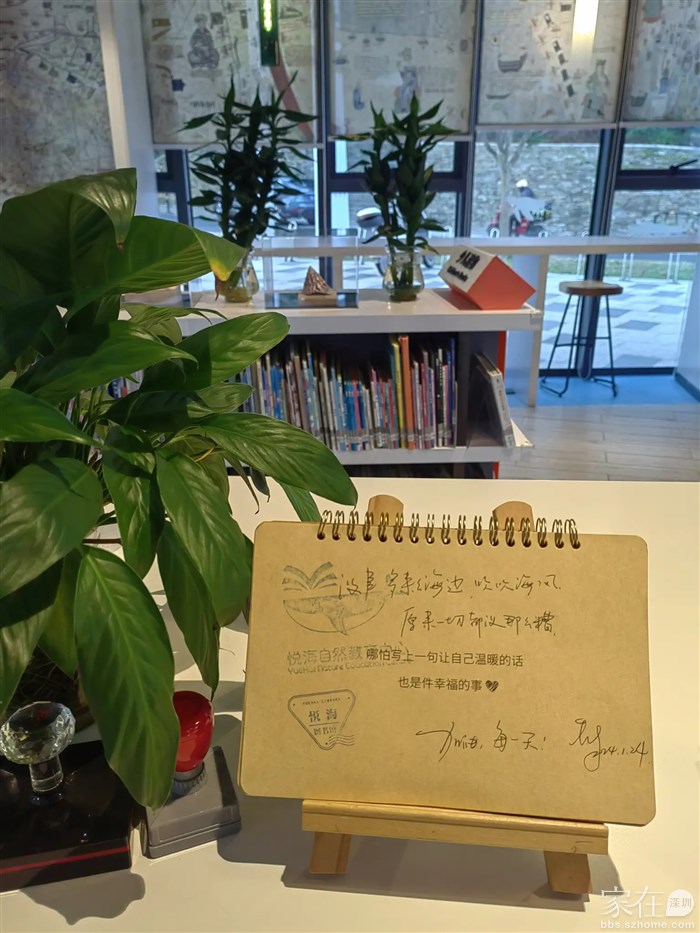 没事多来海边,吹吹海风,
原来一切都没那么糟
悦海自然教育
哪怕写上一句让自己温暖的话
也是件幸福的事
悦海
图书馆
加油,每一天!
2024.1.24
家在深圳
bbs.szhome.com